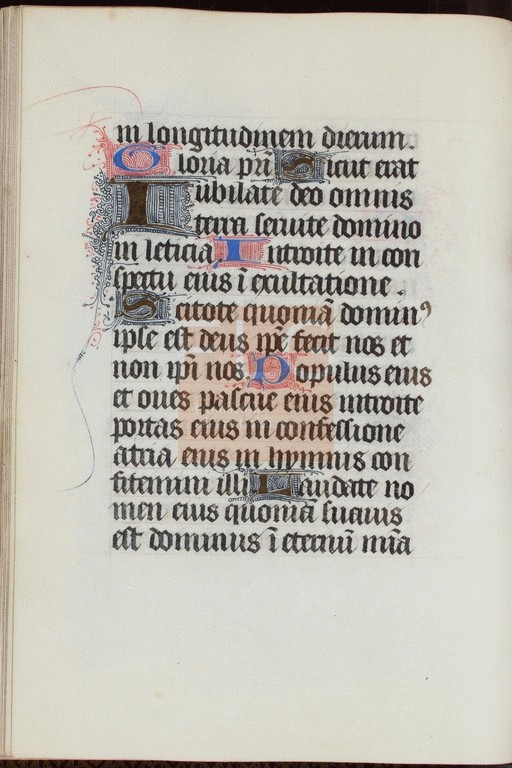 in longitudinem dierum.
Gloria pr̃i Sicut erat
Iubilate deo omnis
terra seruite domino
in leticia Introite in con
spectu eius ĩ exultatione .
Scitote quoniã dominꝰ
ipse est deus ip̃e fecit nos et
non ip̃i nos. Populus eius
et oues pascue eius introite
portas eius in confessione
atria eius in hymnis con
fitemini illi Laudate no
men eius quoniã suauis
est dominus ĩ eternũ mĩa